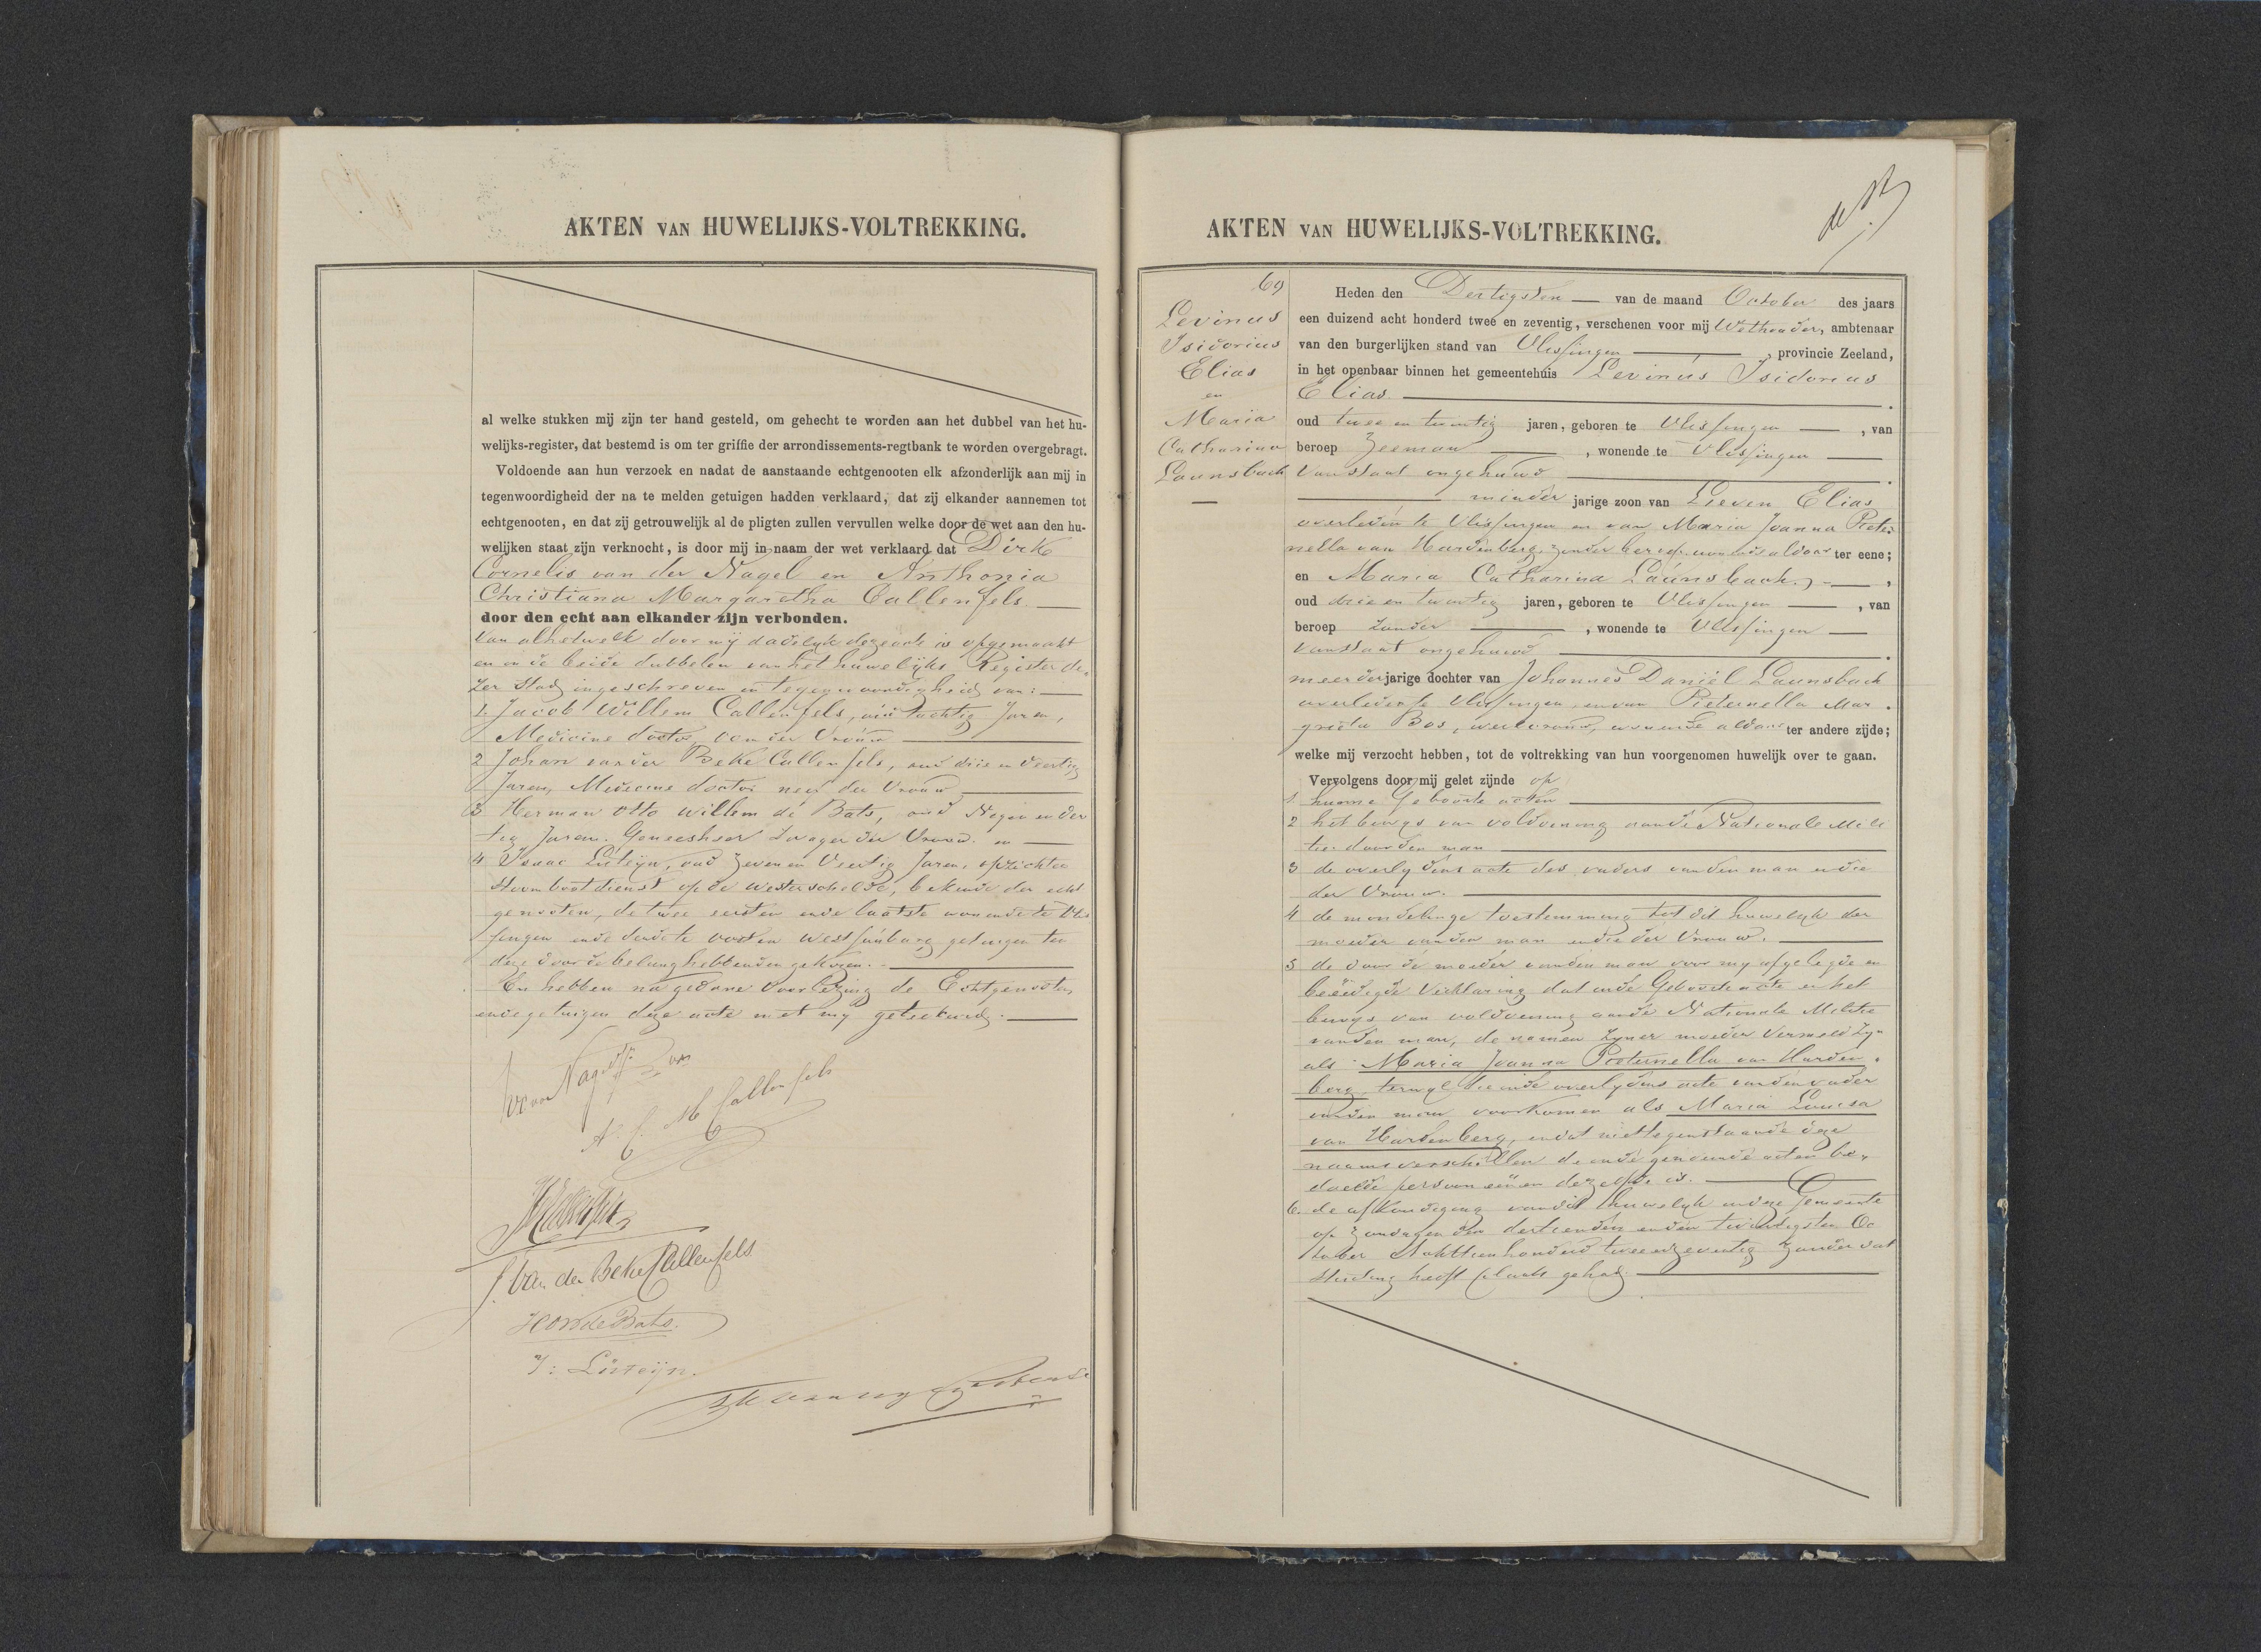 AKTEN VAN HUWELIJKS-VOLTREKKING.
al welke stukken mij zijn ter hand gesteld, om gehecht te worden aan het dubbel van het hu-
welijks-register, dat bestemd is om ter griffie der arrondissements-regtbank te worden overgebragt.
Voldoende aan hun verzoek en nadat de aanstaande echtgenooten elk afzonderlijk aan mij in
tegenwoordigheid der na te melden getuigen hadden verklaard, dat zij elkander aannemen tot
echtgenooten, en dat zij getrouwelijk al de pligten zullen vervullen welke door de wet aan den hu-
welijken staat zijn verknocht, is door mij in naam der wet verklaard dat Dirk
Cornelis van der Nagel en Anthonia
Christiana Margaretha Callenfels.
door den echt aan elkander zijn verbonden.
Van alhetwelk door mij dadelyk deze acte is opgemaakt
en in de beide dubbelen van het huwelijks Register de-
zer Stad ingeschreven in tegenwoordigheid van:
1. Jacob Willem Callenfels, oud tachtig Jaren,
Medicine doctor, oom der Vrouw
2 Johan van der Beke Callenfels, oud drie en Veertig
Jaren, Medicine doctor neef der Vrouw
3 Herman Otto Willem de Bats, oud Negen en der
tig Jaren. Geneesheer Zwager der Vrouw. en
4 Isaac Luteijn, oud Zeven en Veertig Jaren, opzichter
Stoombootdienst op de Westerschelde, bekende der echt
genooten, de twee eersten en de laatste wonende te Vlis
singen en de derde te Oost en West Souburg getuigen ten
deze door de belanghebbenden gekozen.
En hebben na gedane Voorlezing de Echtgenooten
en de getuigen deze acte met mij geteekend.
A. C. M Callenfels
J. Van der Beke Callenfels
HOW de Bats.
I: Luteijn.
AKTEN VAN HUWELIJKS-VOLTREKKING.
69
Levinus
Isidorius
Elias
en
Maria
Catharina
Launsbach
Heden den Dertigsten van de maand October des jaars
een duizend acht honderd twee en zeventig, verschenen voor mij Wethouder, ambtenaar
van den burgerlijken stand van Vlissingen, provincie Zeeland,
in het openbaar binnen het gemeentehuis Levinus Isidorius
Elias.
oud twee en twintig jaren, geboren te Vlissingen, van
beroep Zeeman, wonende te Vlissingen
van staat ongehuwd.
minder jarige zoon van Lieven Elias
overleden te Vlissingen en van Maria Joanna Pieter-
nella van Hardenberg, zonder beroep wonende aldaar ter eene;
en Maria Catharina Launsbach,
oud drie en twintig jaren, geboren te Vlissingen, van
beroep zonder, wonende te Vlissingen
van staat ongehuwd.
meerderjarige dochter van Johannes Daniel Launsbach
overleden te Vlissingen, en van Pieternella Mar-
grieta Bos, werkvrouw, wonende aldaar ter andere zijde;
welke mij verzocht hebben, tot de voltrekking van hun voorgenomen huwelijk over te gaan.
Vervolgens door mij gelet zijnde op
1 hunne Geboorte acten
2 het bewys van voldoening aan de Nationale Mili
tie door den man
3 de overlydens acte des vaders van den man en die
der Vrouw.
4 de mondelinge toestemming tot dit huwelyk der
moeder van den man en die der Vrouw.
5 de door de moeder van den man voor my afgelegde en
beëedigde Verklaring dat in de Geboorte acte en het
bewys van voldoening aan de Nationale Militie
van den man, de namen zyner moeder Vermeld zyn
als Maria Joanna Pieternella van Harden-
berg, terwyl die in de overlydens acte van den vader
van den man voorkomen als Maria Louisa
van Hardenberg, en dat niettegenstaande deze
naamsverschillen de in de genoemde acten be-
doelde persoon een en dezelfde is.
6. de afkondiging van dit huwelyk in deze Gemeente
op Zondagen den dertienden en den twintigsten Oc
tober Achttienhonderd twee en zeventig zonder dat
stuiting heeft plaats gehad.